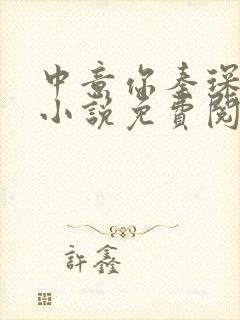 中意你秦琛
小說免費閱
許鑫